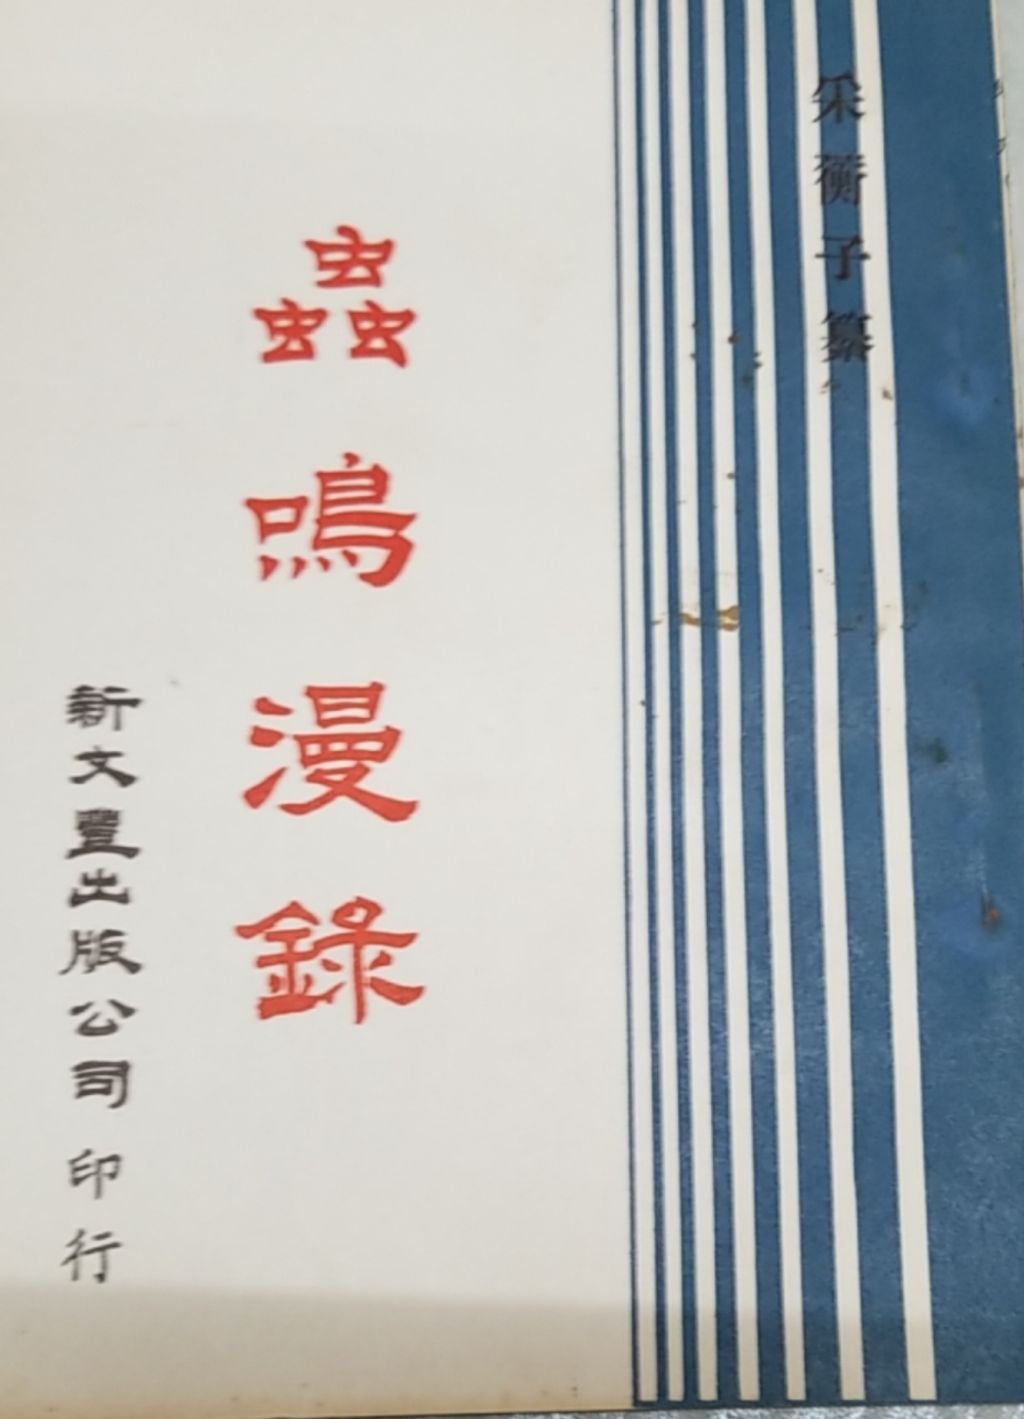 采蘅子纂
蟲鳴漫錄
新文豐出版公司印行